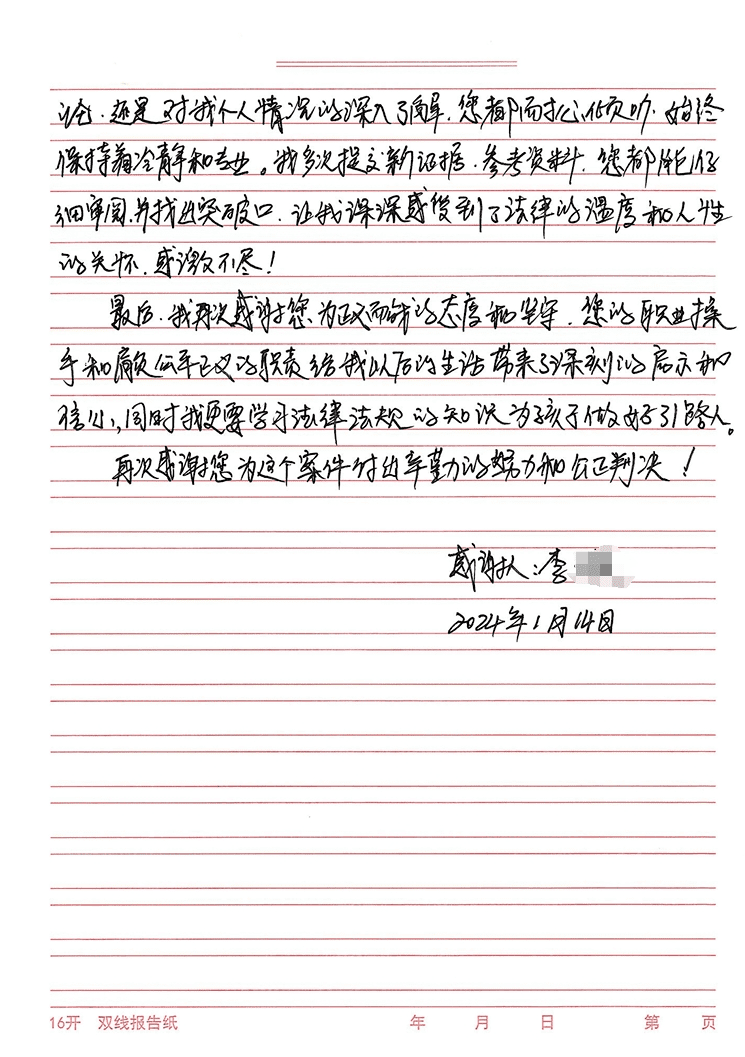 论,还是对我个人情况的深入了解,您都耐心倾听,始终
保持着冷静和专业。我多次提交新证据、参考资料,您都能仔
细审阅,并找出突破口,让我深深感受到了法律的温度和人性
的关怀,感激不尽!
最后,我再次感谢您为正义而战的态度和坚守,您的职业操
守和肩负公平正义的职责给我以后的生活带来了深刻的启示和
信心,同时我更要学习法律法规的知识为孩子做好引路人。
再次感谢您为这个案件付出辛勤的努力和公正判决!
感谢人:李
2024年1月14日
16开 双线报告纸 年 月 日 第 页